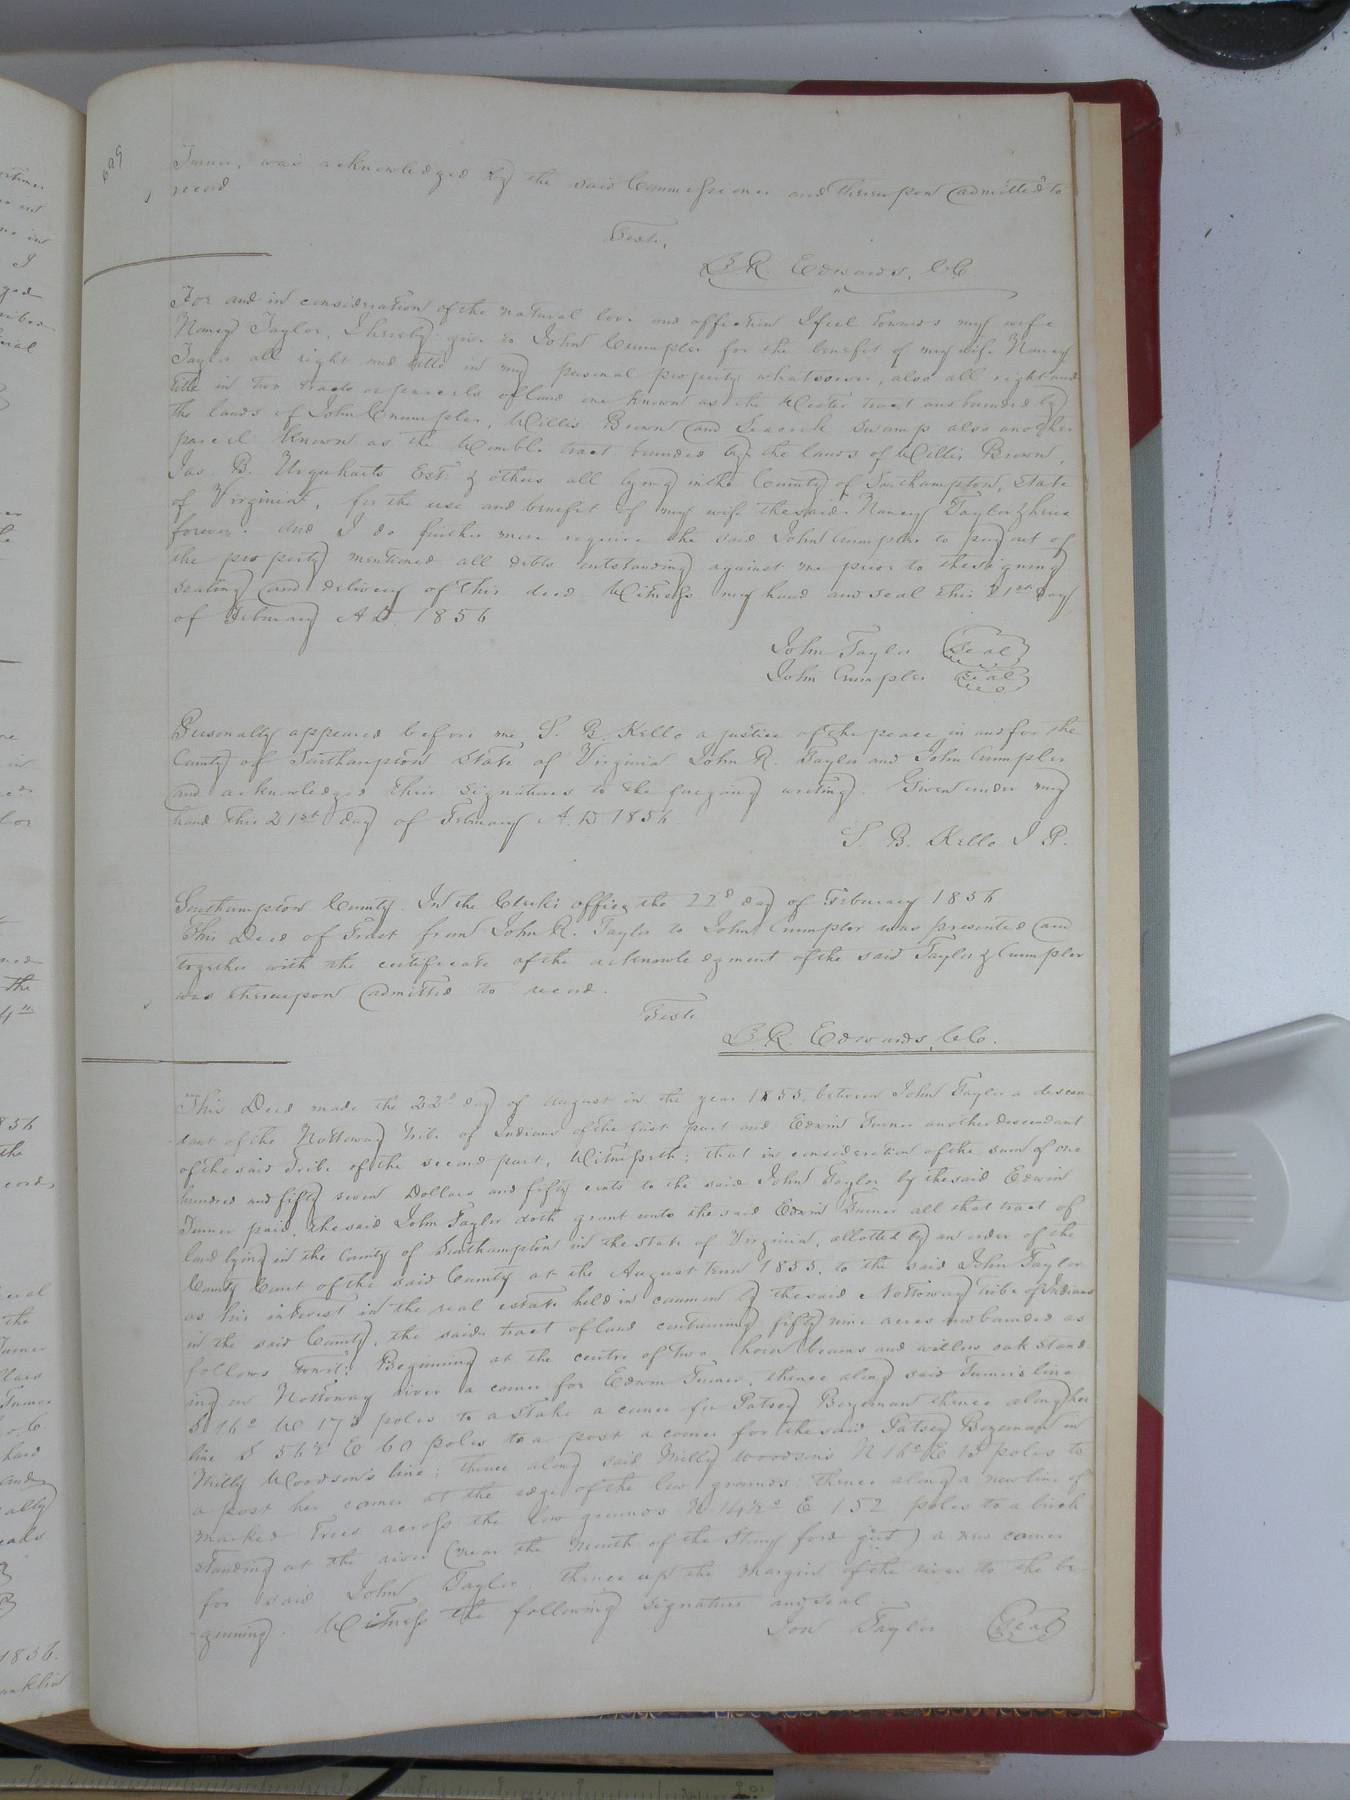 Turner, was acknowledged by the said Commissioner and thereupon admitted to
record
Teste,
L. R. Edwards, CC
For and in consideration of the natural love and affection I feel towards my wife
Nancy Taylor, I hereby give to John Crumpler for the benefit of my wife Nancy
Taylor all right and title in my personal property whatsoever, also all right and
title in two tracts or parcels of land one known as the tract and bounded by
the lands of John Crumpler, Willis Brown and Seacock Swamp also another
parcel known as the Womble tract bounded by the lands of Willis Brown,
Jas. B. Urquharts Est. & others all lying in the County of Southampton, State
of Virginia, for the use and benefit of my wife the said Nancy Taylor & heirs
forever. And I do further more require the said John Crumpler to pay out of
the property mentioned all debts outstanding against me prior to the signing
sealing and delivery of this deed Witness my hand and seal this 21st day
of February A.D. 1856
John Taylor Seal
John Crumpler Seal
Personally appeared before me S. B. Kello a justice of the peace in and for the
County of Southampton State of Virginia John R. Taylor and John Crumpler
and acknowledged their signatures to the foregoing writing. Given under my
hand this 21st day of February A.D. 1856.
S. B. Kello J P.
Southampton County. In the Clerks office the 22d day of February 1856
This Deed of Trust from John R. Taylor to John Crumpler was presented and
together with the certificate of the acknowledgment of the said Taylor & Crumpler
was thereupon admitted to record.
Teste
L. R. Edwards, CC.
This Deed made the 22d day of August in the year 1855, between John Taylor a descen-
dant of the Nottoway tribe of Indians of the first part and Edwin Turner another descendant
of the said tribe of the second part, Witnesseth; that in consideration of the sum of one
hundred and fifty seven Dollars and fifty cents to the said John Taylor by the said Edwin
Turner paid, the said John Taylor doth grant unto the said Edwin Turner all that tract of
land lying in the County of Southampton in the State of Virginia, allotted by an order of the
County Court of the said County at the August term 1855, to the said John Taylor
as his interest in the real estate held in common by the said Nottoway tribe of Indians
in the said County, the said tract of land containing fifty nine acres and bounded as
follows towit: Beginning at the centre of two horn beams and willow oak stand-
ing on Nottoway river a corner for Edwin Turner, thence along said Turner's line
S 16° W 173 poles to a stake a corner for Patsey Bozeman thence along her
line S 56½ E 60 poles to a post a corner for the said Patsey Bozeman in
Milly Woodson's line; thence along said Milly Woodsons N 16° E 13 poles to
a post her corner at the edge of the low grounds; thence along a new line of
marked trees across the low grounds N 14½° E 152 poles to a birch
standing at the river (near the mouth of the Stony ford gut) a new corner
for said John Taylor, thence up the margin of the river to the be-
ginning. Witness the following signature and seal.
Taylor Seal